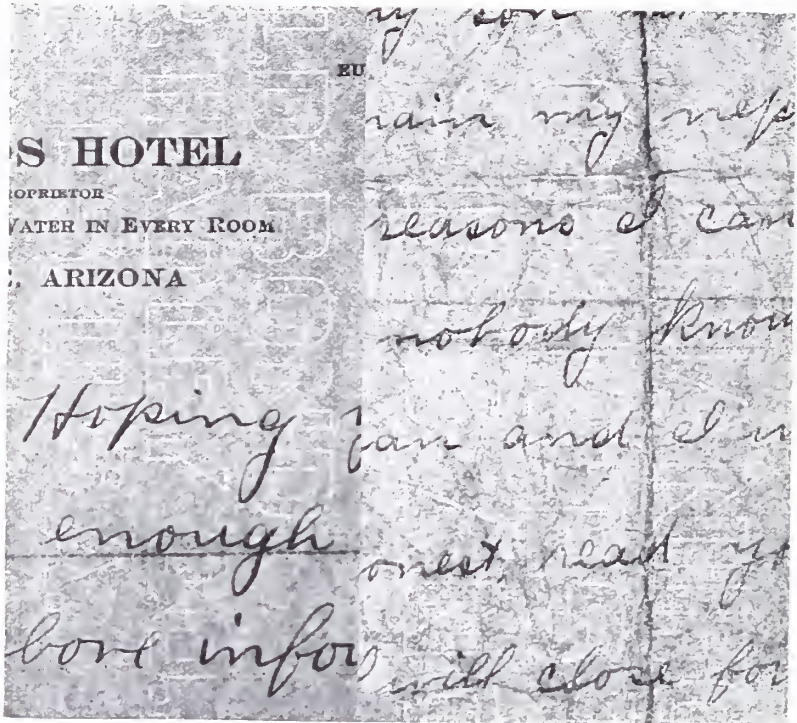 EU
S HOTEL
ROPRIETOR
WATER IN EVERY ROOM
, ARIZONA
Hoping
enough
bove infor
y son
rain my nep
reasons I can
nobody know
and I
onest, read
will close for